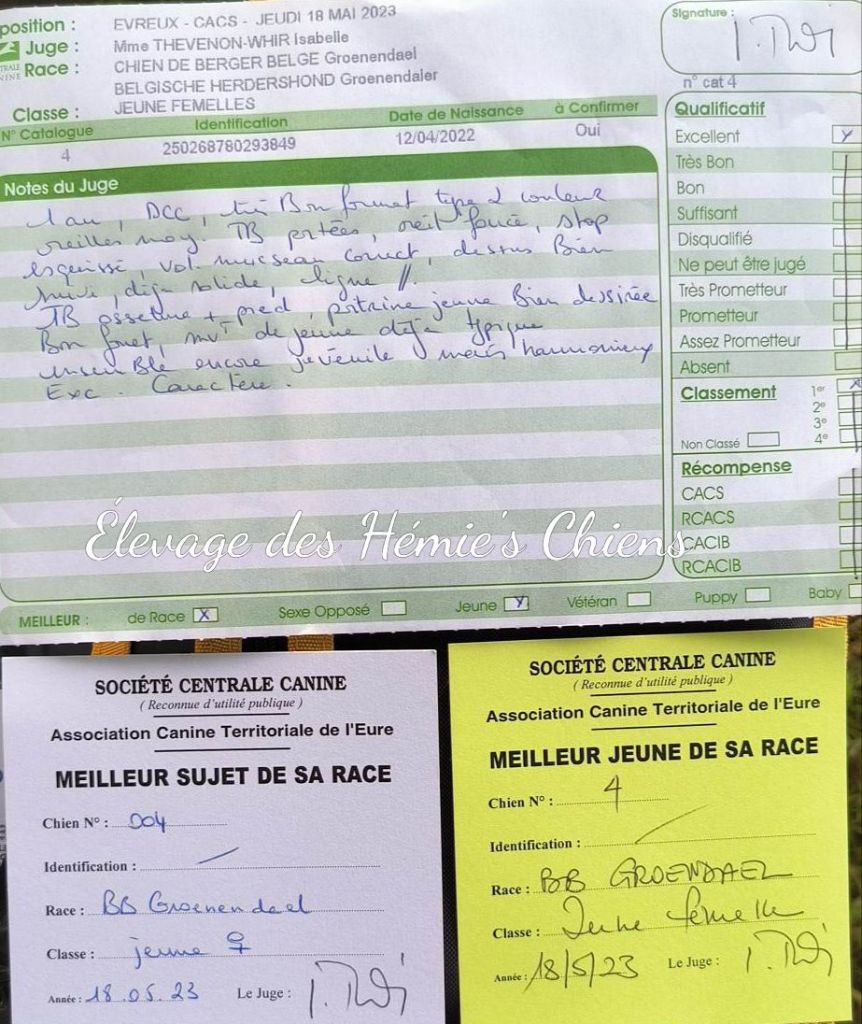 position : EVREUX - CACS - JEUDI 18 MAI 2023
Juge : Mme THEVENON-WHIR Isabelle
Race : CHIEN DE BERGER BELGE Groenendael
BELGISCHE HERDERSHOND Groenendaler
Classe : JEUNE FEMELLES
N° Catalogue Identification Date de Naissance à Confirmer
4 250268780293849 12/04/2022 Oui
Notes du Juge
1 an, DCC, très Bon format type & couleur
oreilles moy. TB portées, oeil foncé, stop
esquissé, vol. museau correct, dessus Bien
suivi, déjà solide, ligne //.
TB ossature + pied, poitrine jeune Bien dessinée
Bon fouet, mvt de jeune déjà typique
ensemBle encore juvénile mais harmonieux
Exc. Caractère.
Signature :
I. Thi
n° cat 4
Qualificatif
Excellent
Très Bon
Bon
Suffisant
Disqualifié
Ne peut être jugé
Très Prometteur
Prometteur
Assez Prometteur
Absent
Classement 1er
2e
3e
Non Classé 4e
Récompense
CACS
RCACS
CACIB
RCACIB
Élevage des Hémie's Chiens
MEILLEUR : de Race X Sexe Opposé Jeune X Vétéran Puppy Baby
SOCIÉTÉ CENTRALE CANINE
( Reconnue d'utilité publique )
Association Canine Territoriale de l'Eure
MEILLEUR SUJET DE SA RACE
Chien N° : 004
Identification :
Race : BB Groenendael
Classe : jeune ♀
Année : 18.05.23 Le Juge :
SOCIÉTÉ CENTRALE CANINE
( Reconnue d'utilité publique )
Association Canine Territoriale de l'Eure
MEILLEUR JEUNE DE SA RACE
Chien N° : 4
Identification :
Race : BB GROENDAEL
Classe : Jeune femelle
Année : 18/5/23 Le Juge :